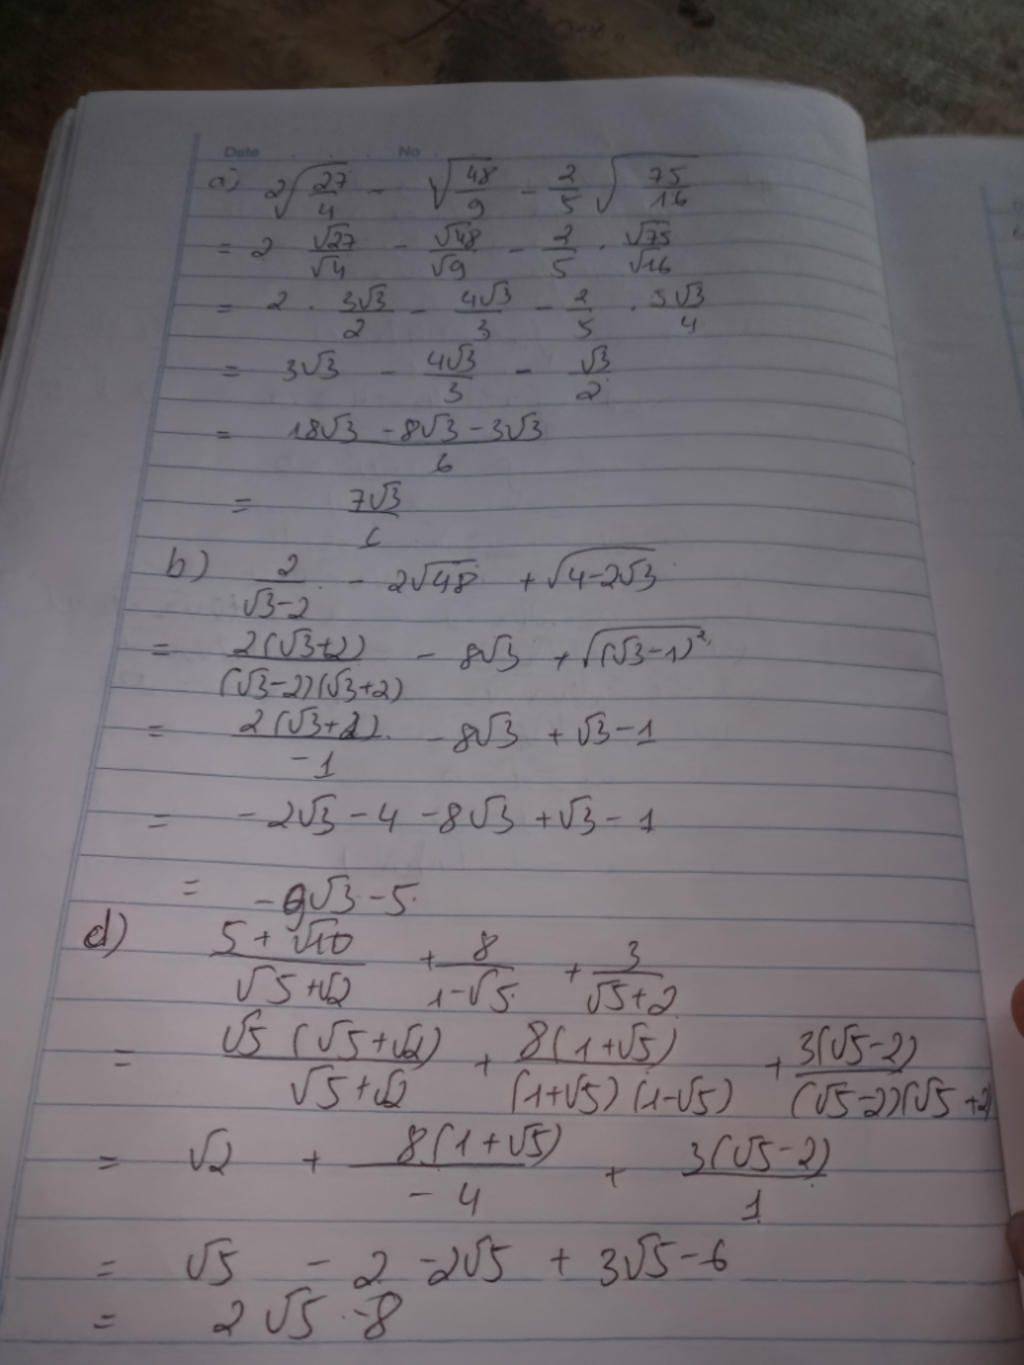 Date No
a) 2√(27/4) - √(48/9) - 2/5 √(75/16)
= 2 √27/√4 - √48/√9 - 2/5 . √75/√16
= 2 . 3√3/2 - 4√3/3 - 2/5 . 5√3/4
= 3√3 - 4√3/3 - √3/2
= (18√3 - 8√3 - 3√3)/6
= 7√3/6
b) 2/(√3-2) - 2√48 + √(4-2√3)
= 2(√3+2)/((√3-2)(√3+2)) - 8√3 + √((√3-1)²)
= 2(√3+2)/(-1) - 8√3 + √3-1
= -2√3 - 4 - 8√3 + √3 - 1
= -9√3 - 5.
d) (5+√10)/(√5+√2) + 8/(1-√5) + 3/(√5+2)
= √5(√5+√2)/(√5+√2) + 8(1+√5)/((1+√5)(1-√5)) + 3(√5-2)/((√5-2)(√5+2)
= √2 + 8(1+√5)/(-4) + 3(√5-2)/1
= √5 - 2 - 2√5 + 3√5 - 6
= 2√5 - 8